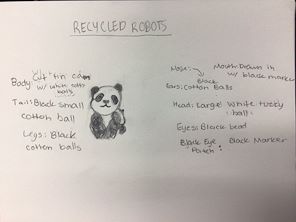 RECYCLED ROBOTS
Body: "tin" can
w/ white cotton
balls
Tail: Black small
cotton ball
Legs: Black
cotton balls
Nose:
Black
Mouth: Drawn in
w/ black marker
Ears: Cotton Balls
Head: Large White
ball
Eyes: Black bead
Black Eye
Patch: Black Marker